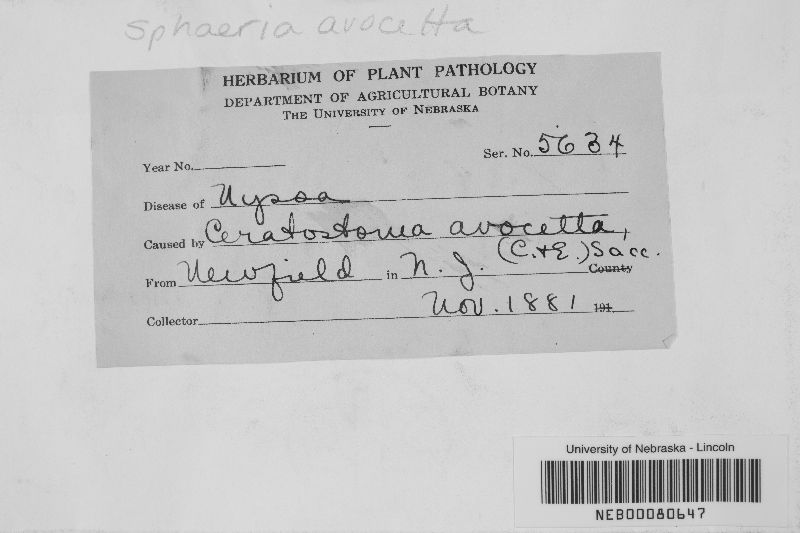 Sphaeria avocetta
HERBARIUM OF PLANT PATHOLOGY
DEPARTMENT OF AGRICULTURAL BOTANY
THE UNIVERSITY OF NEBRASKA
Year No. Ser. No. 5634
Disease of Nyssa
Caused by Ceratostoma avocetta,
(C. & E.) Sacc.
From Newfield in N. J. County
Nov. 1881 191
Collector
University of Nebraska - Lincoln
NEB00080647